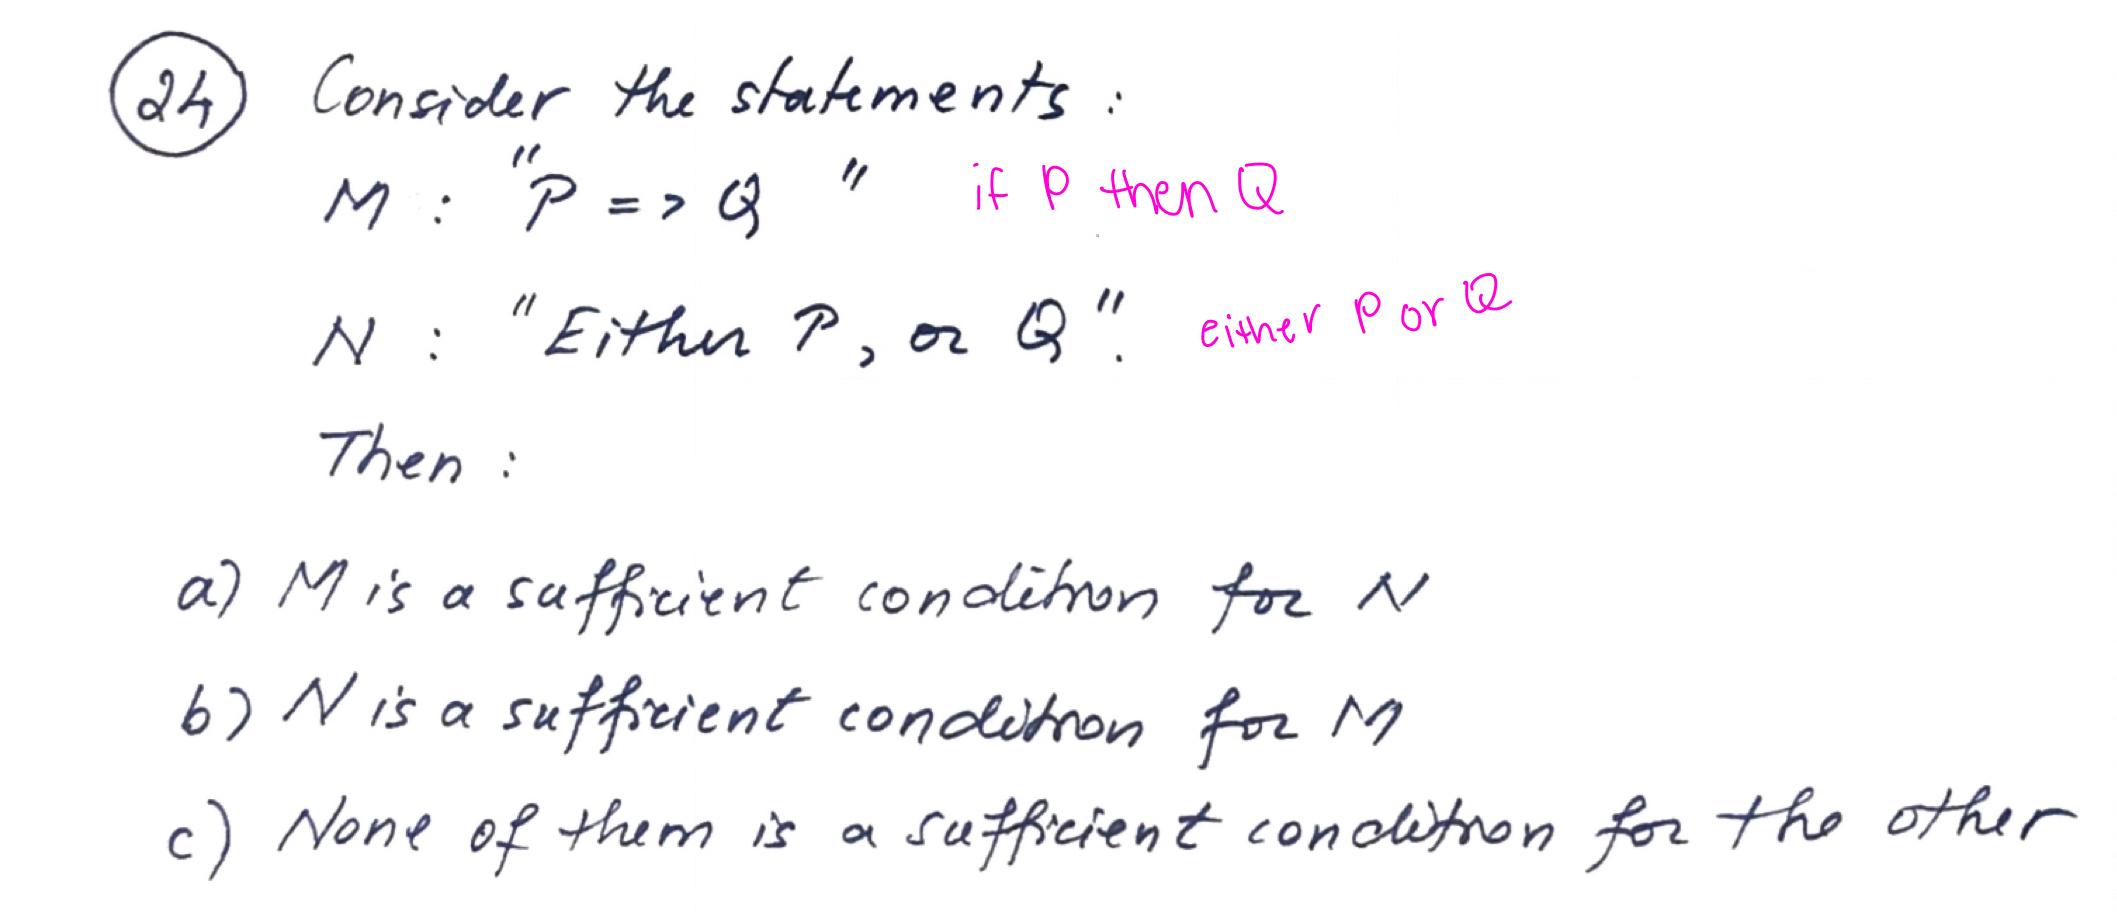 24 Consider the statements :
M : "P => Q" if P then Q
N : "Either P, or Q". either P or Q
Then :
a) M is a sufficient condition for N
b) N is a sufficient condition for M
c) None of them is a sufficient condition for the other